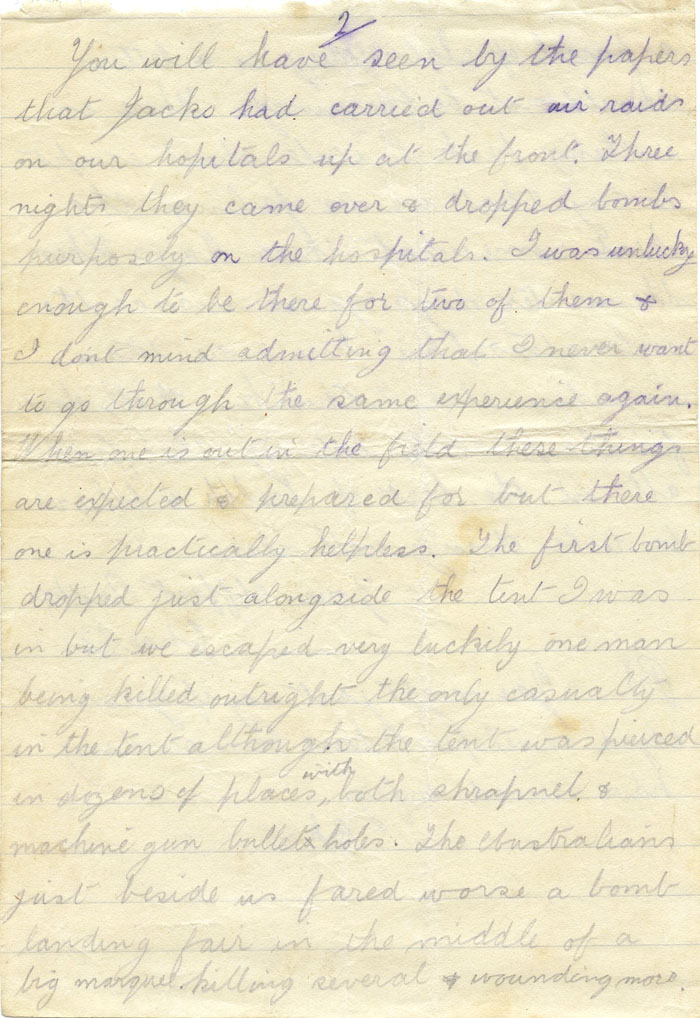 2
You will have seen by the papers
that Jacko had carried out air raids
on our hopitals up at the front. Three
nights they came over & dropped bombs
purposely on the hospitals. I was unlucky
enough to be there for two of them &
I dont mind admitting that I never want
to go through the same experience again.
When one is out in the field these things
are expected & prepared for but there
one is practically helpless. The first bomb
dropped just alongside the tent I was
in but we escaped very luckily one man
being killed outright the only casualty
in the tent although the tent was pierced
in dozens of places, with both shrapnel &
machine gun bullet holes. The Australians
just beside us fared worse a bomb
landing fair in the middle of a
big marquee killing several & wounding more.